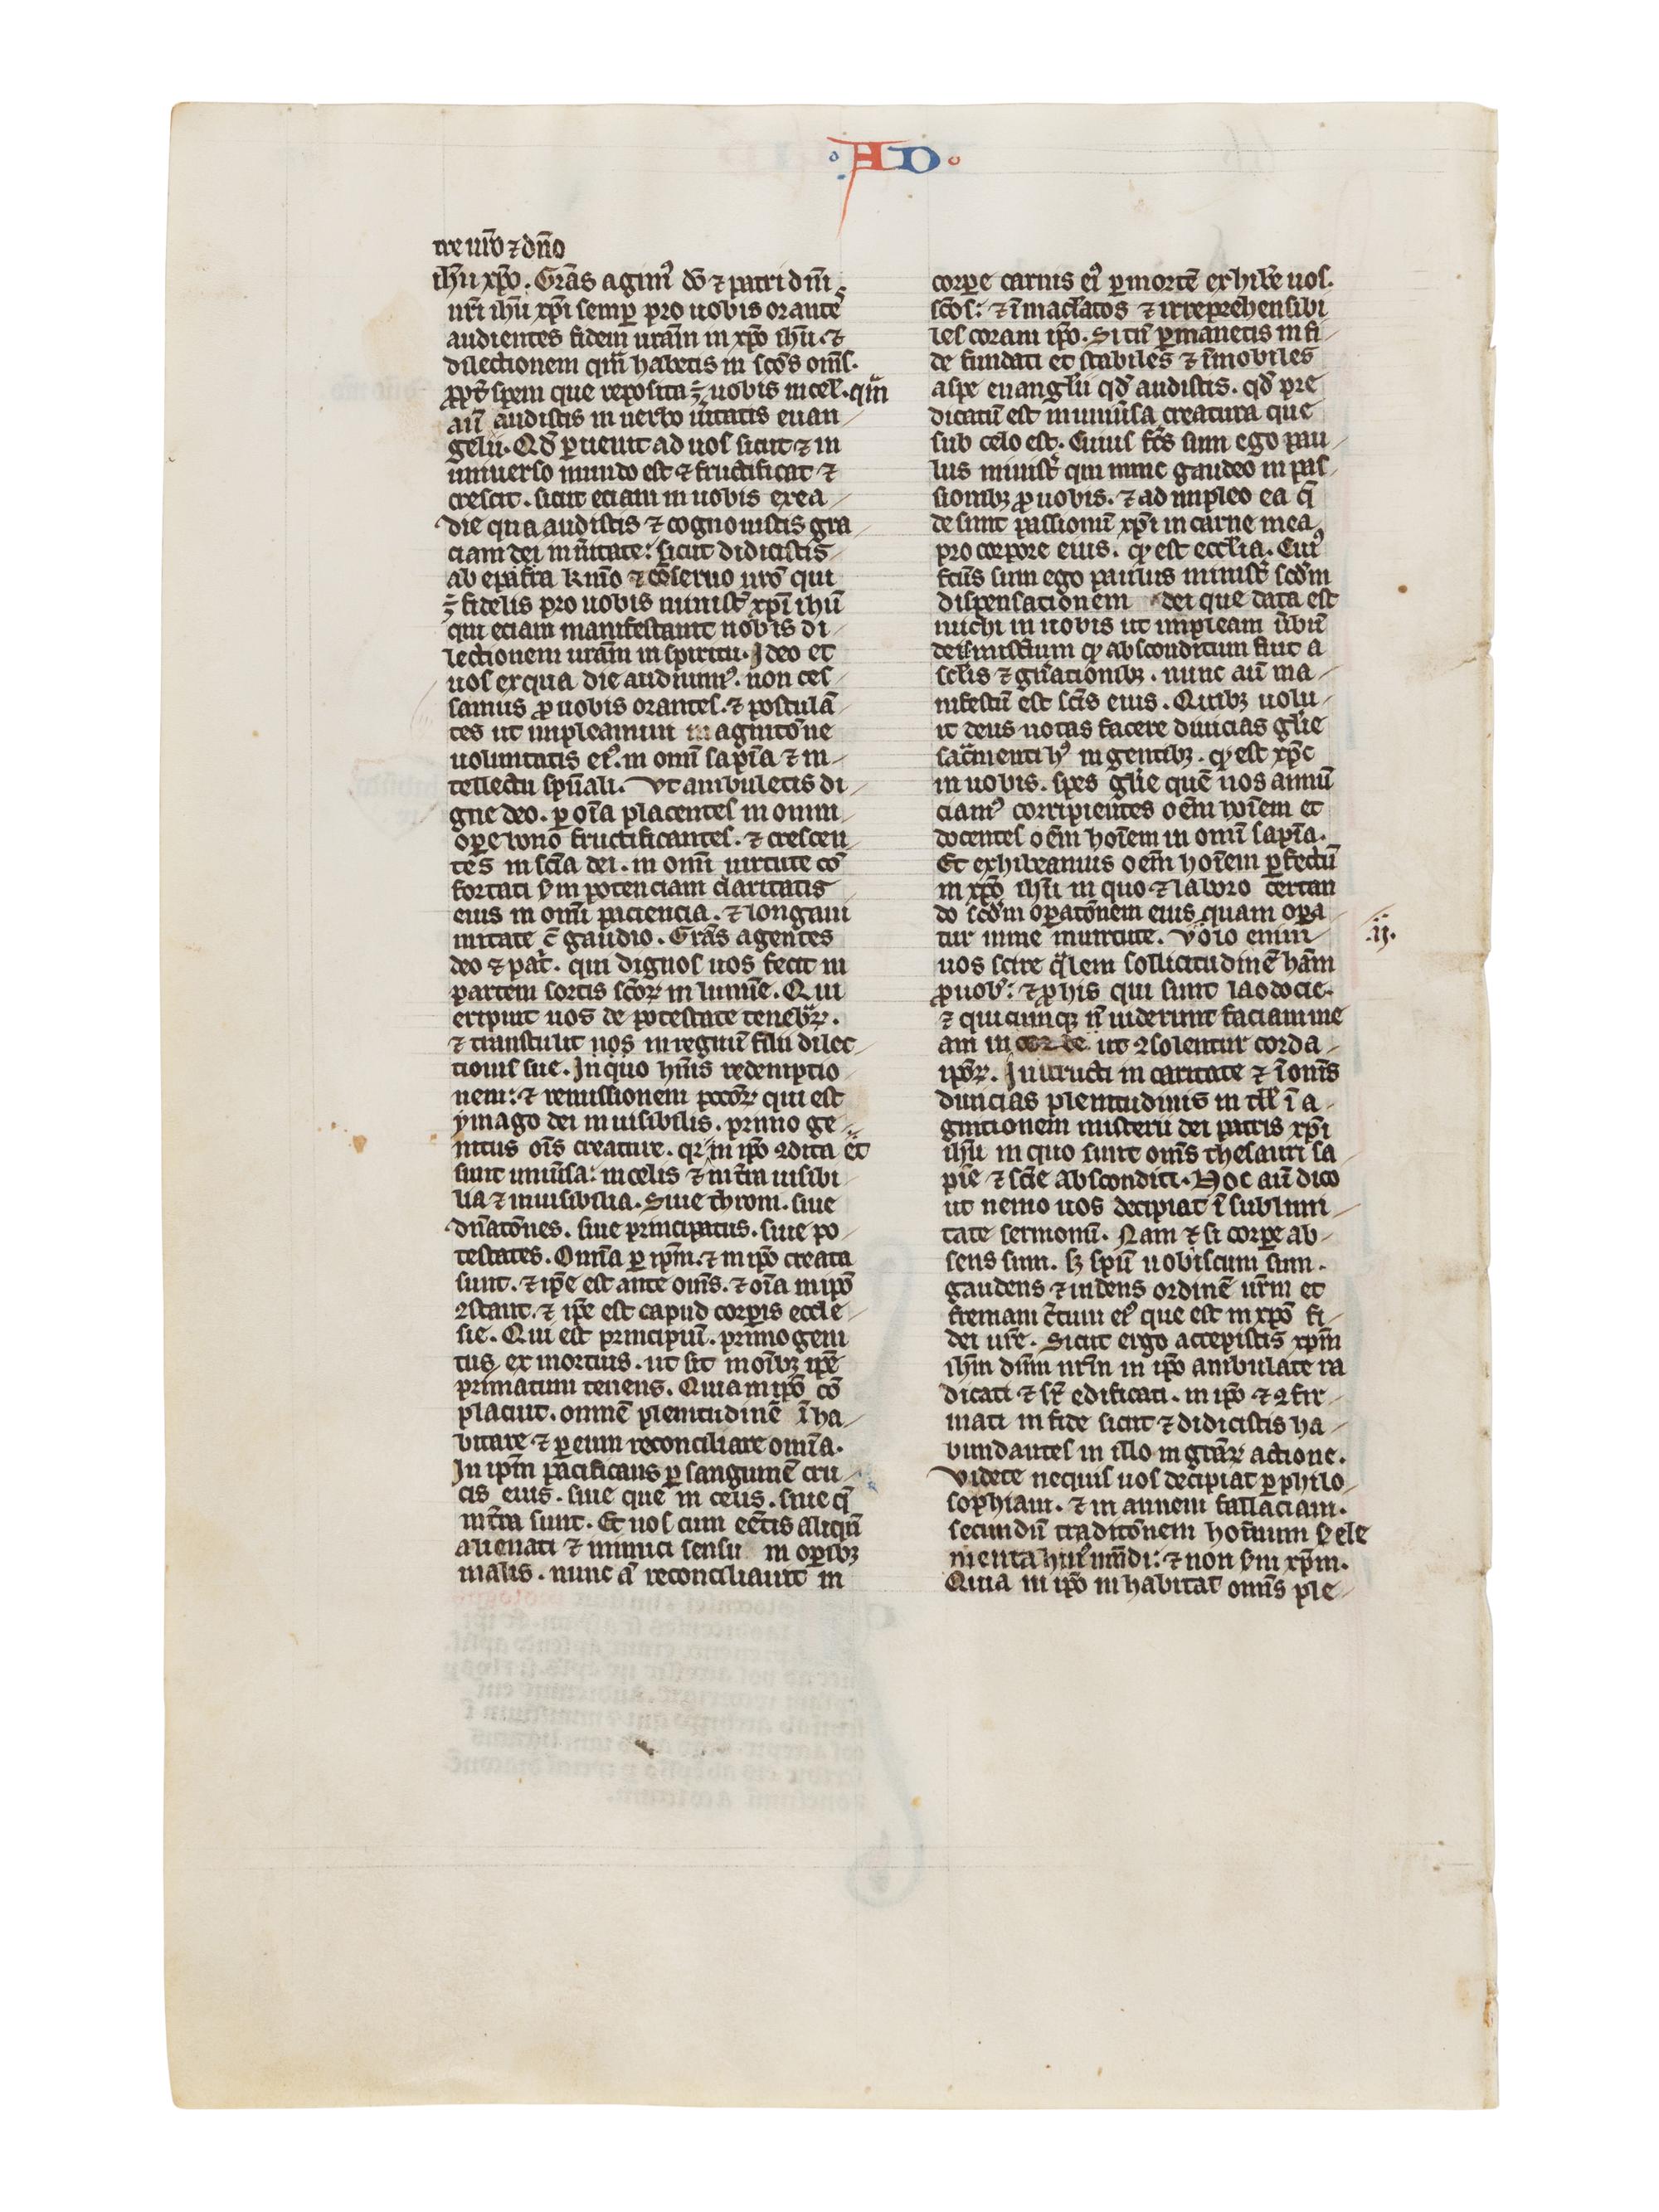 AD
tre ur̄o ⁊ dn̄o
ihū xp̄o. Grās agimꝰ dō ⁊ patri dn̄i
nr̄i ihū xp̄i semꝑ pro uobis orante
audientes fidem ur̄am in xp̄o ihū. ⁊
dilectionem qm̄ habetis in scōs om̄s.
spem que reposita ē uobis in cel. qm̄
aū audistis in uerbo ūitatis euan
gelii. Qd̄ ꝑuenit ad uos sicut ⁊ in
uniuerso mundo est ⁊ fructificat ⁊
crescit. sicut eciam in uobis exea
die qua audistis ⁊ cognouistis gra
ciam dei in ūitate: sicut didicistis
ab epafra kr̄mo ⁊ cōseruo nr̄o qui
ē fidelis pro uobis minist̄ xp̄i ihū
qui eciam manifestauit nobis di
lectionem ur̄am in spiritu. Ideo et
nos ex qua die audiuimꝰ. non ces
samus ꝓ uobis orantes. ⁊ postulā
tes ut impleamini in agnitōne
uoluntatis eiꝰ. in omī sapīa ⁊ in
tellectu spūali. Vt ambuletis di
gne deo. ꝑ oīa placentes in omni
oꝑe bono fructificantes. ⁊ crescen
tes in scīa dei. in omī uirtute cō
fortati in potenciam claritatis
eius in omī paciencia. ⁊ longani
mitate c̄ gaudio. Grās agentes
deo ⁊ pat̄. qui dignos uos fecit in
partem sortis scōꝝ in lumīe. Qui
eripuit nos de potestate tenebrꝝ.
⁊ transtulit nos in regnū filii dilec
tionis sue. In quo hēmꝰ redemptio
nem: ⁊ remissionem pccōꝝ qui est
ymago dei inuisibilis. primo ge
nitus oīs creature. qr̄ in ip̄o ꝯdita et
sunt uniūsa: in celis ⁊ in t̄ra uisibi
lia ⁊ inuisibilia. Siue throni. siue
dn̄atōnes. siue principatus. siue po
testates. Omīa ꝑ ip̄m. ⁊ in ip̄o creata
sunt. ⁊ ip̄e est ante om̄s. ⁊ oīa in ip̄o
ꝯstant. ⁊ ip̄e est capud corꝑis eccle
sie. Qui est principiū. primogeni
tus ex mortuis. ut sit in oībꝫ ip̄e
primatum tenens. Quia in ip̄o cō
placuit. omnē plenitudinē īha
bitare ⁊ ꝑ eum reconciliare omīa.
In ip̄m pacificans ꝑ sanguinē cru
cis eius. siue que in celis. siue q̄
in t̄ra sunt. Et uos cum eētis aliqn̄
alienati ⁊ inimici sensu in oꝑibꝫ
malis. nunc aū reconciliauit in
corꝑe carnis eiꝰ ꝑ mortē exhibe uos.
scōs: ⁊ īmacl̄atos ⁊ irreprehensibi
les coram ip̄o. Si tn̄ ꝑmanetis in fi
de fundati et stabiles ⁊ īmobiles
a spe euanglīi qd̄ audistis. qd̄ pre
dicatū est in uniūsa creatura que
sub celo est. Cuius fcs̄ sum ego pau
lus minist̄ qui nunc gaudeo in pas
sionibꝫ ꝓ uobis. ⁊ ad impleo ea q̄
desunt passionū xp̄i in carne mea
pro corpore eius. qd̄ est ecclīa. Cuiꝰ
fcūs sum ego paulus minist̄ scd̄m
dispensacionem dei que data est
michi in uobis ut impleam ūbū
dei mist̄ium qd̄ absconditum fuit a
sclīs ⁊ gn̄ationibꝫ. nunc aū ma
nifestū est scīs eius. Quibꝫ uolu
it deus notas facere diuicias glīe
sac̄menti hꝰ in gentibꝫ. qd̄ est xp̄c
in uobis. spes glīe quē nos annū
ciamꝰ corripientes oēm hoīem et
docentes oēm hoīem in omī sapīa.
Et exhibeamus oēm hoīem ꝑfectū
in xp̄o ihū in quo ⁊ laboro certan
do scd̄m oꝑatōnem eius quam oꝑa
tur in me in uirtute. Volo enim
.ij.
uos scire q̄lem sollicitudinē hām
ꝓ uob: ⁊ ꝓ his qui sunt laodocie.
⁊ quicunqꝫ n̄ uiderunt faciam me
am in corde ut ꝯsolentur corda
ip̄oꝝ. Instructi in caritate ⁊ ī om̄s
diuicias plenitudinis in tll̄s ī a
gnitionem misterii dei patris xp̄i
ihū in quo sunt om̄s thesauri sa
pīe ⁊ scīe absconditi. Hoc aū dico
ut nemo uos decipiat ī sublimi
tate sermonū. Nam ⁊ si corꝑe ab
sens sum. sꝫ spū uobiscum sum.
gaudens ⁊ uidens ordinē ur̄m et
firmam eiꝰ que est in xp̄o fi
dei ur̄e. Sicut ergo accepistis xp̄m
ihm̄ dn̄m nr̄m in ip̄o ambulate ra
dicati ⁊ sr̄ edificati. in ip̄o ⁊ ꝯfir
mati in fide sicut ⁊ didicistis ha
bundantes in illo in grāꝝ actione.
Videte nequis uos decipiat ꝑ philo
sophiam. ⁊ inanem fallaciam.
secundū traditōnem hominum ele
menta huiꝰ mūdi: ⁊ non xp̄m.
Quia in ip̄o inhabitat om̄s ple